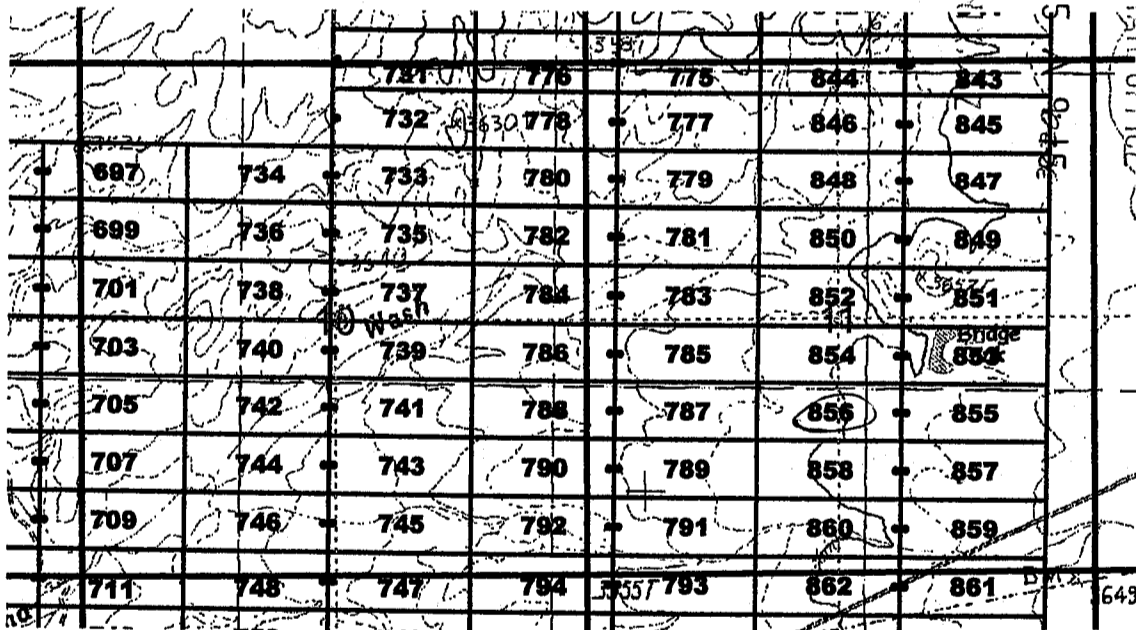 3581
731 776 775 844 843
732 3630 778 777 846 845
697 734 733 780 779 848 847
699 736 735 782 781 850 849
701 738 737 784 783 852 851
Wash
Bridge
703 740 739 786 785 854 853
705 742 741 788 787 856 855
707 744 743 790 789 858 857
709 746 745 792 791 860 859
711 748 747 794 3555T 793 862 861
3649